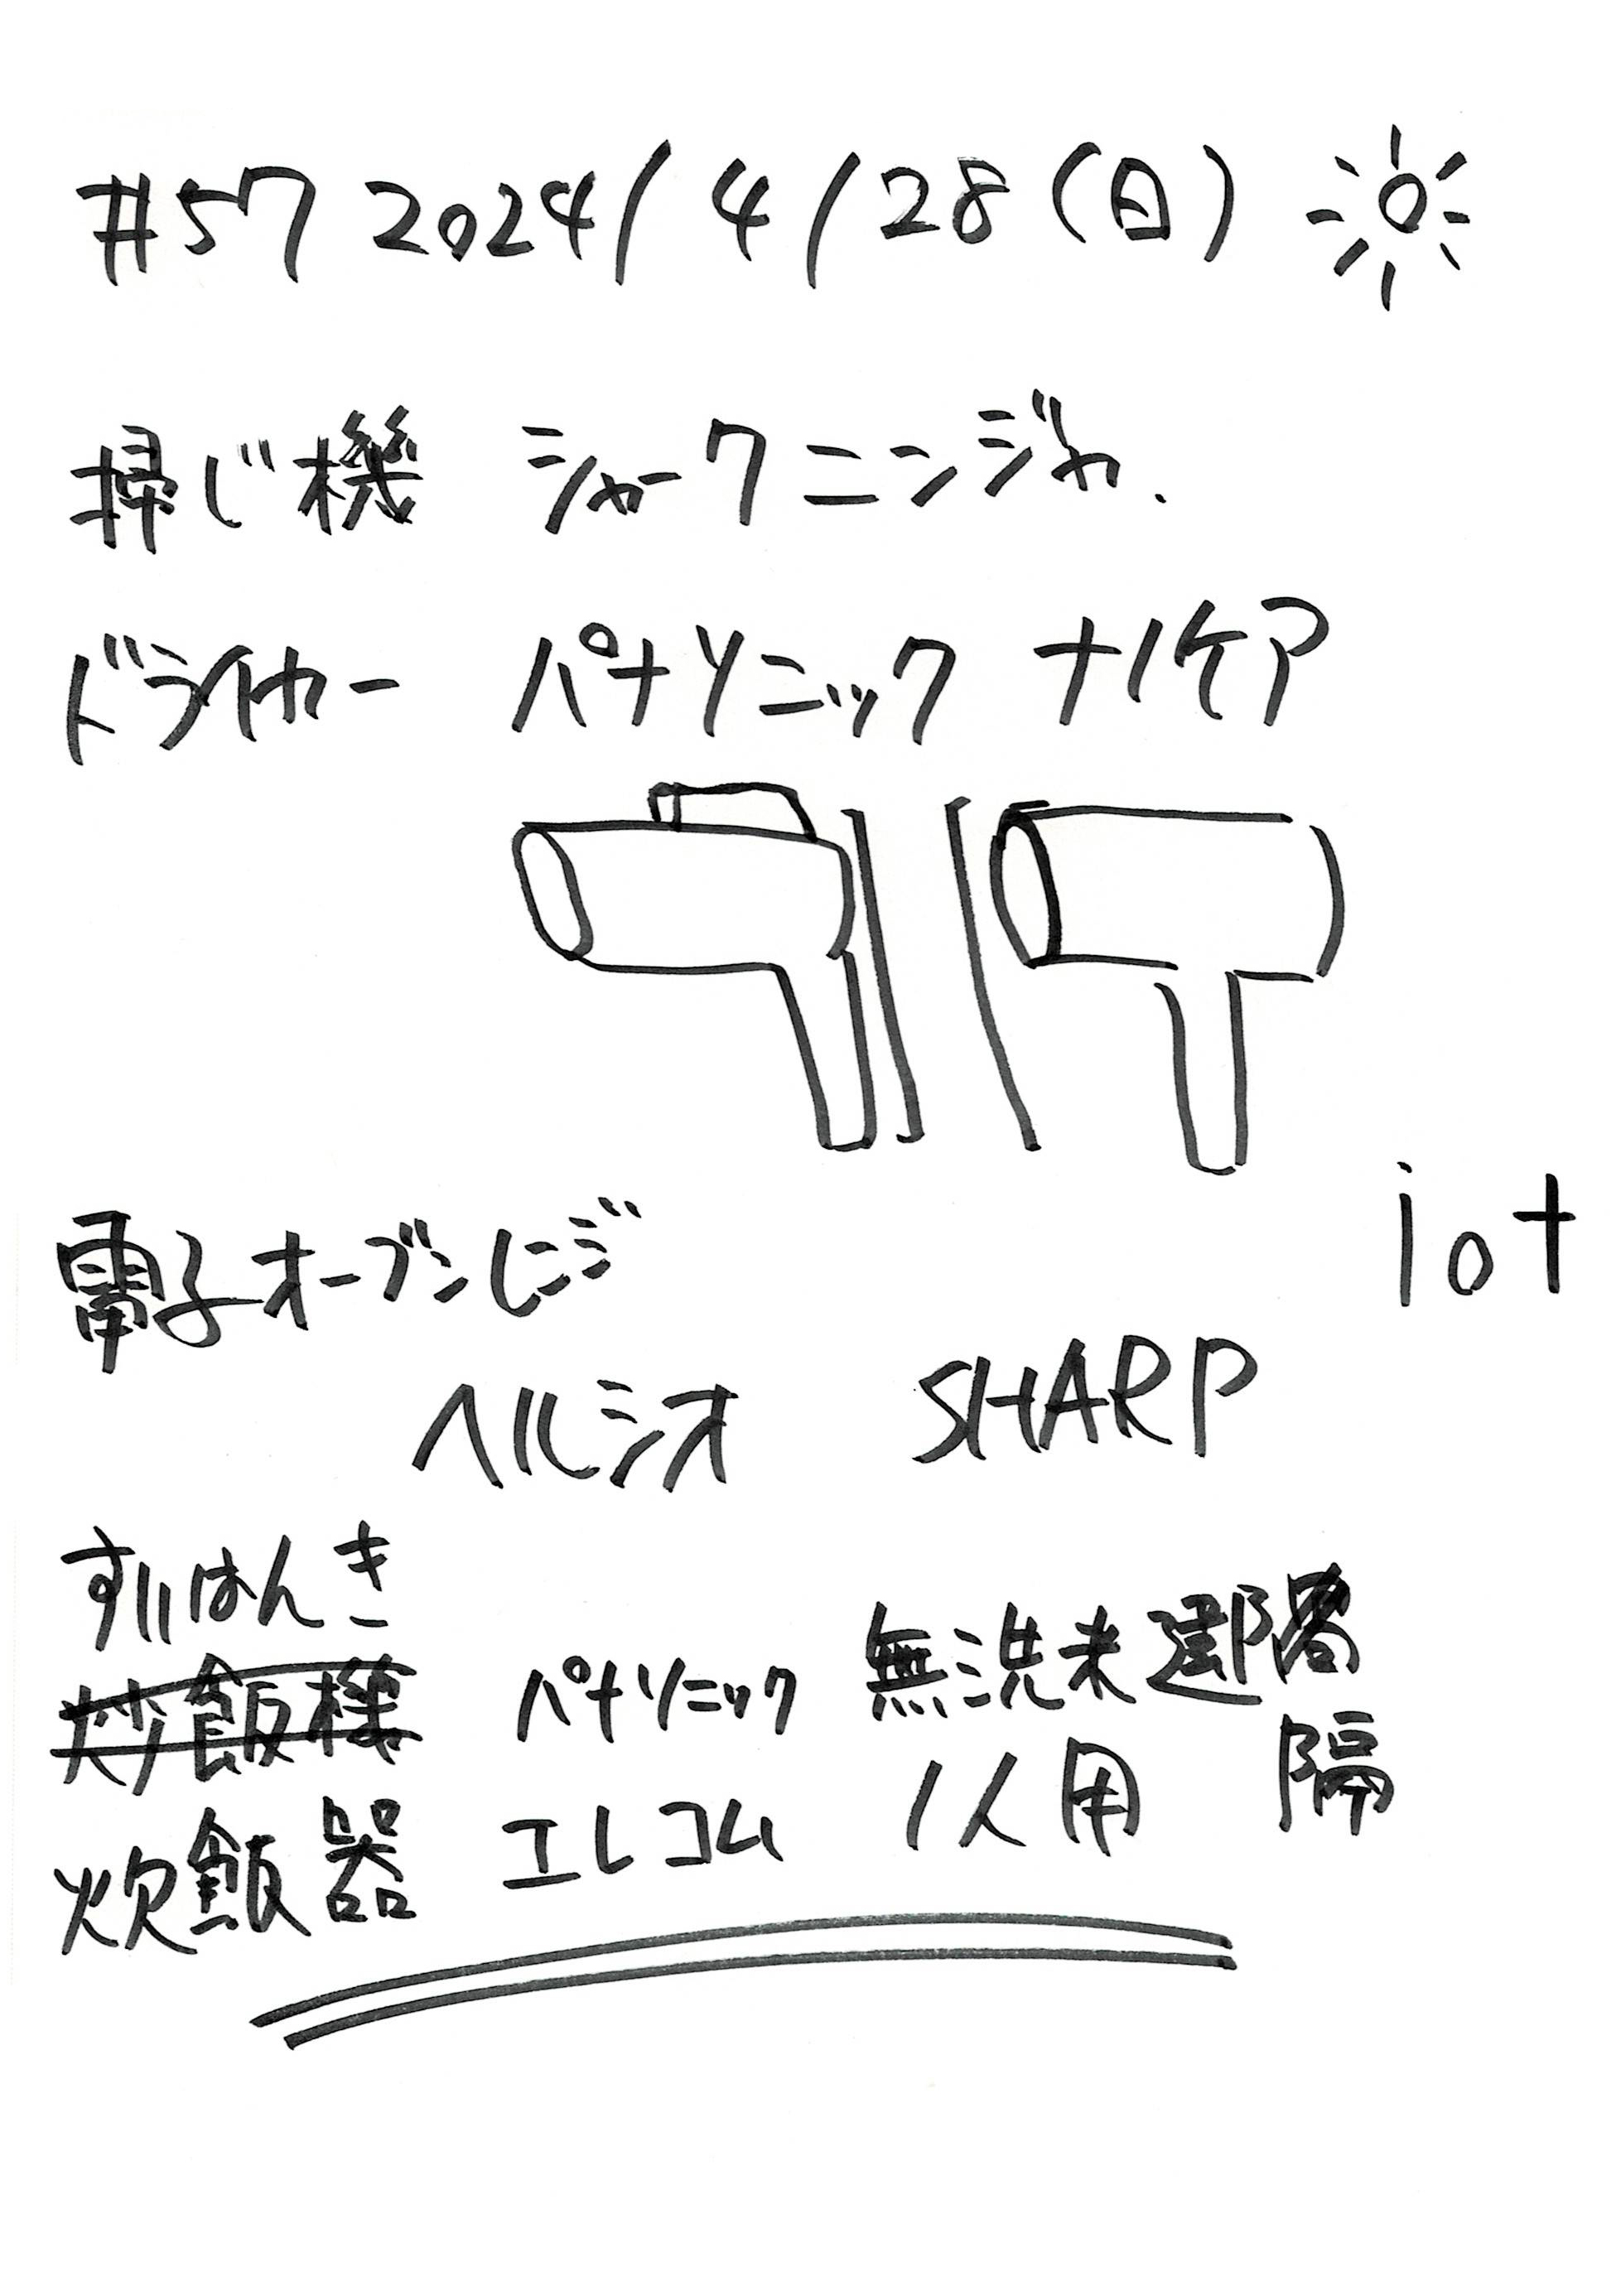 #57 2024/4/28(日)
掃じ機 シャークニンジャ.
ドライヤー パナソニック ナノケア
iot
電子オーブンレンジ
ヘルシオ SHARP
すいはんき
炒飯機 パナソニック 無洗米
隔
炊飯器 エレコム 1人用